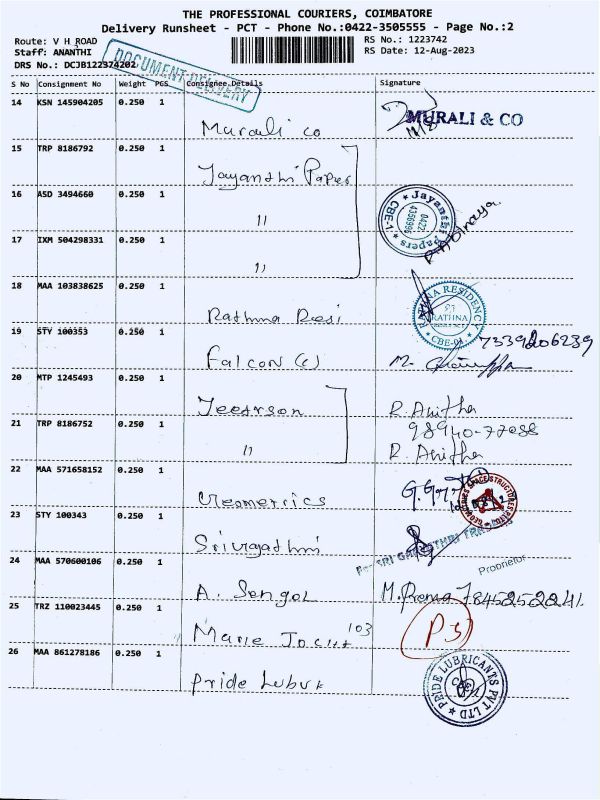 THE PROFESSIONAL COURIERS, COIMBATORE
Delivery Runsheet - PCT - Phone No.:0422-3505555 - Page No.:2
Route: V H ROAD RS No.: 1223742
Staff: ANANTHI RS Date: 12-Aug-2023
DRS No.: DCJB122374202
DOCUMENT DELIVERY
S No Consignment No Weight PCS Consignee.Details Signature
14 KSN 145904205 0.250 1
Murali co MURALI & CO
15 TRP 8186792 0.250 1
Jayanthi Paper
16 ASD 3494660 0.250 1
11 Jayanthi Papers CBE-1 0422 4356996
17 IXM 504298331 0.250 1
11
18 MAA 103838625 0.250 1
Rathna Resi RATHNA RESIDENCY RATHNA CBE-01
19 STY 100353 0.250 1 7339206239
Falcon (c) M.
20 MTP 1245493 0.250 1
Jeerson R. Anitha
21 TRP 8186752 0.250 1 98940-77088
11 R. Anitha
22 MAA 571658152 0.250 1
Geometrics GEOMETRICS SPACE STRUCTURES
23 STY 100343 0.250 1
Srivigathmi For SRI
24 MAA 570600106 0.250 1 Proprietor
A. Sengol M. Prema 7845252241
25 TRZ 110023445 0.250 1
Marie 103
26 MAA 861278186 0.250 1
Pride Lubrk PRIDE LUBRICANTS PVT LTD